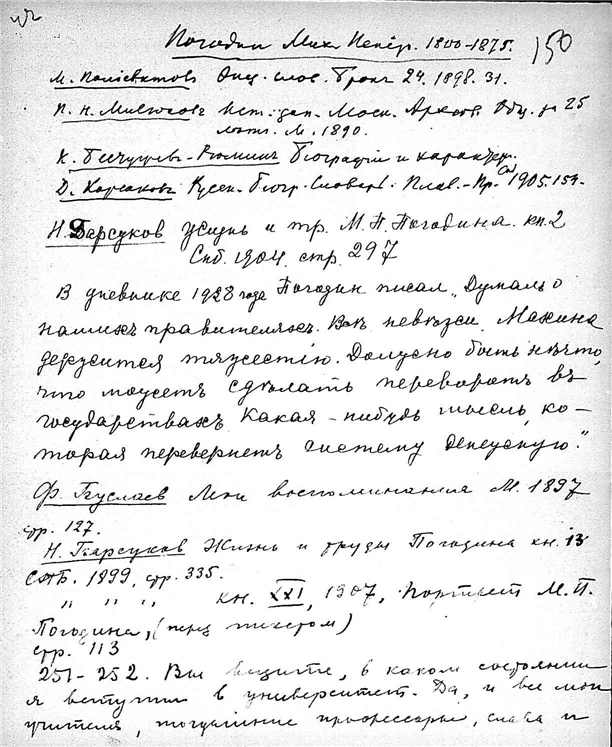 150
Погодин Мих. Петр. 1800-1875.
М. Полiевктовъ Энц. слов. Гран 24. 1898. 31.
П. Н. Милюковъ Ист. зап. Моск. Археол. Общ. за 25
лѣт. М. 1890.
К. Бестужевъ-Рюминъ Биографiи и характер.
Д. Корсаковъ Русск. Биогр. Словарь. Плав.-Пр. 1905. 154.
Н. Барсуков Жизнь и тр. М. П. Погодина. кн. 2
Спб. 1904. стр. 297
В дневнике 1928 годе Погодин писал „Думал о
наших правителяхъ. Всѣ невѣжи. Махина
держится тяжестiю. Должно быть нѣчто,
что можетъ сдѣлать переворотъ въ
государствахъ какая-нибудь мысль, ко-
торая перевернетъ систему денежную."
Ф. Буслаев Мои воспоминания М. 1897
стр. 127.
Н. Барсуков Жизнь и труды Погодина кн. 13
СПБ. 1899, стр. 335.
" " " кн. XXI, 1907, портрет М. П.
Погодина, (перед текстом)
стр. 113
251-252. Вы видите, в каком состоянии
я вступил в университет. Да, и все мои
учителя, тогдашние профессоры, слава и